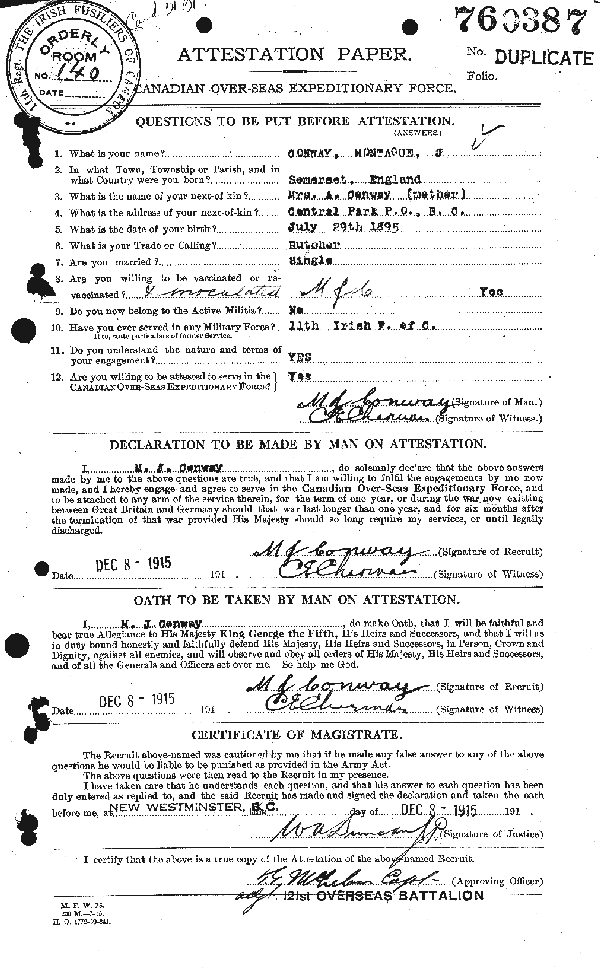 11th Regt. THE IRISH FUSILIERS OF CANADA
ORDERLY ROOM
NO. 140
DATE
760387
ATTESTATION PAPER.
No. DUPLICATE
Folio.
CANADIAN OVER-SEAS EXPEDITIONARY FORCE.
QUESTIONS TO BE PUT BEFORE ATTESTATION.
(ANSWERS)
1. What is your name? CONWAY, MONTAGUE, J
2. In what Town, Township or Parish, and in
what Country were you born? Somerset, England
3. What is the name of your next-of kin? Mrs. A. Conway (mother)
4. What is the address of your next-of-kin? Central Park P.O., B. C.
5. What is the date of your birth? July 29th 1895
6. What is your Trade or Calling? Butcher
7. Are you married? Single
8. Are you willing to be vaccinated or re-
vaccinated? & inoculated M J C Yes
9. Do you now belong to the Active Militia? No
10. Have you ever served in any Military Force? 11th Irish F. of C.
If so, state particulars of former Service.
11. Do you understand the nature and terms of
your engagement? YES
12. Are you willing to be attested to serve in the
CANADIAN OVER-SEAS EXPEDITIONARY FORCE? Yes
M J Conway (Signature of Man.)
(Signature of Witness.)
DECLARATION TO BE MADE BY MAN ON ATTESTATION.
I, M. J. Conway, do solemnly declare that the above answers
made by me to the above questions are true, and that I am willing to fulfil the engagements by me now
made, and I hereby engage and agree to serve in the Canadian Over-Seas Expeditionary Force, and
to be attached to any arm of the service therein, for the term of one year, or during the war now existing
between Great Britain and Germany should that war last longer than one year, and for six months after
the termination of that war provided His Majesty should so long require my services, or until legally
discharged.
M J Conway (Signature of Recruit)
Date DEC 8 - 1915 191 (Signature of Witness)
OATH TO BE TAKEN BY MAN ON ATTESTATION.
I, M. J. Conway, do make Oath, that I will be faithful and
bear true Allegiance to His Majesty King George the Fifth, His Heirs and Successors, and that I will as
in duty bound honestly and faithfully defend His Majesty, His Heirs and Successors, in Person, Crown and
Dignity, against all enemies, and will observe and obey all orders of His Majesty, His Heirs and Successors,
and of all the Generals and Officers set over me. So help me God.
M J Conway (Signature of Recruit)
Date DEC 8 - 1915 191 (Signature of Witness)
CERTIFICATE OF MAGISTRATE.
The Recruit above-named was cautioned by me that if he made any false answer to any of the above
questions he would be liable to be punished as provided in the Army Act.
The above questions were then read to the Recruit in my presence.
I have taken care that he understands each question, and that his answer to each question has been
duly entered as replied to, and the said Recruit has made and signed the declaration and taken the oath
before me, at NEW WESTMINSTER, B.C. day of DEC 8 - 1915 191 .
(Signature of Justice)
I certify that the above is a true copy of the Attestation of the above-named Recruit.
Capt (Approving Officer)
adj. 121st OVERSEAS BATTALION
M. F. W. 23.